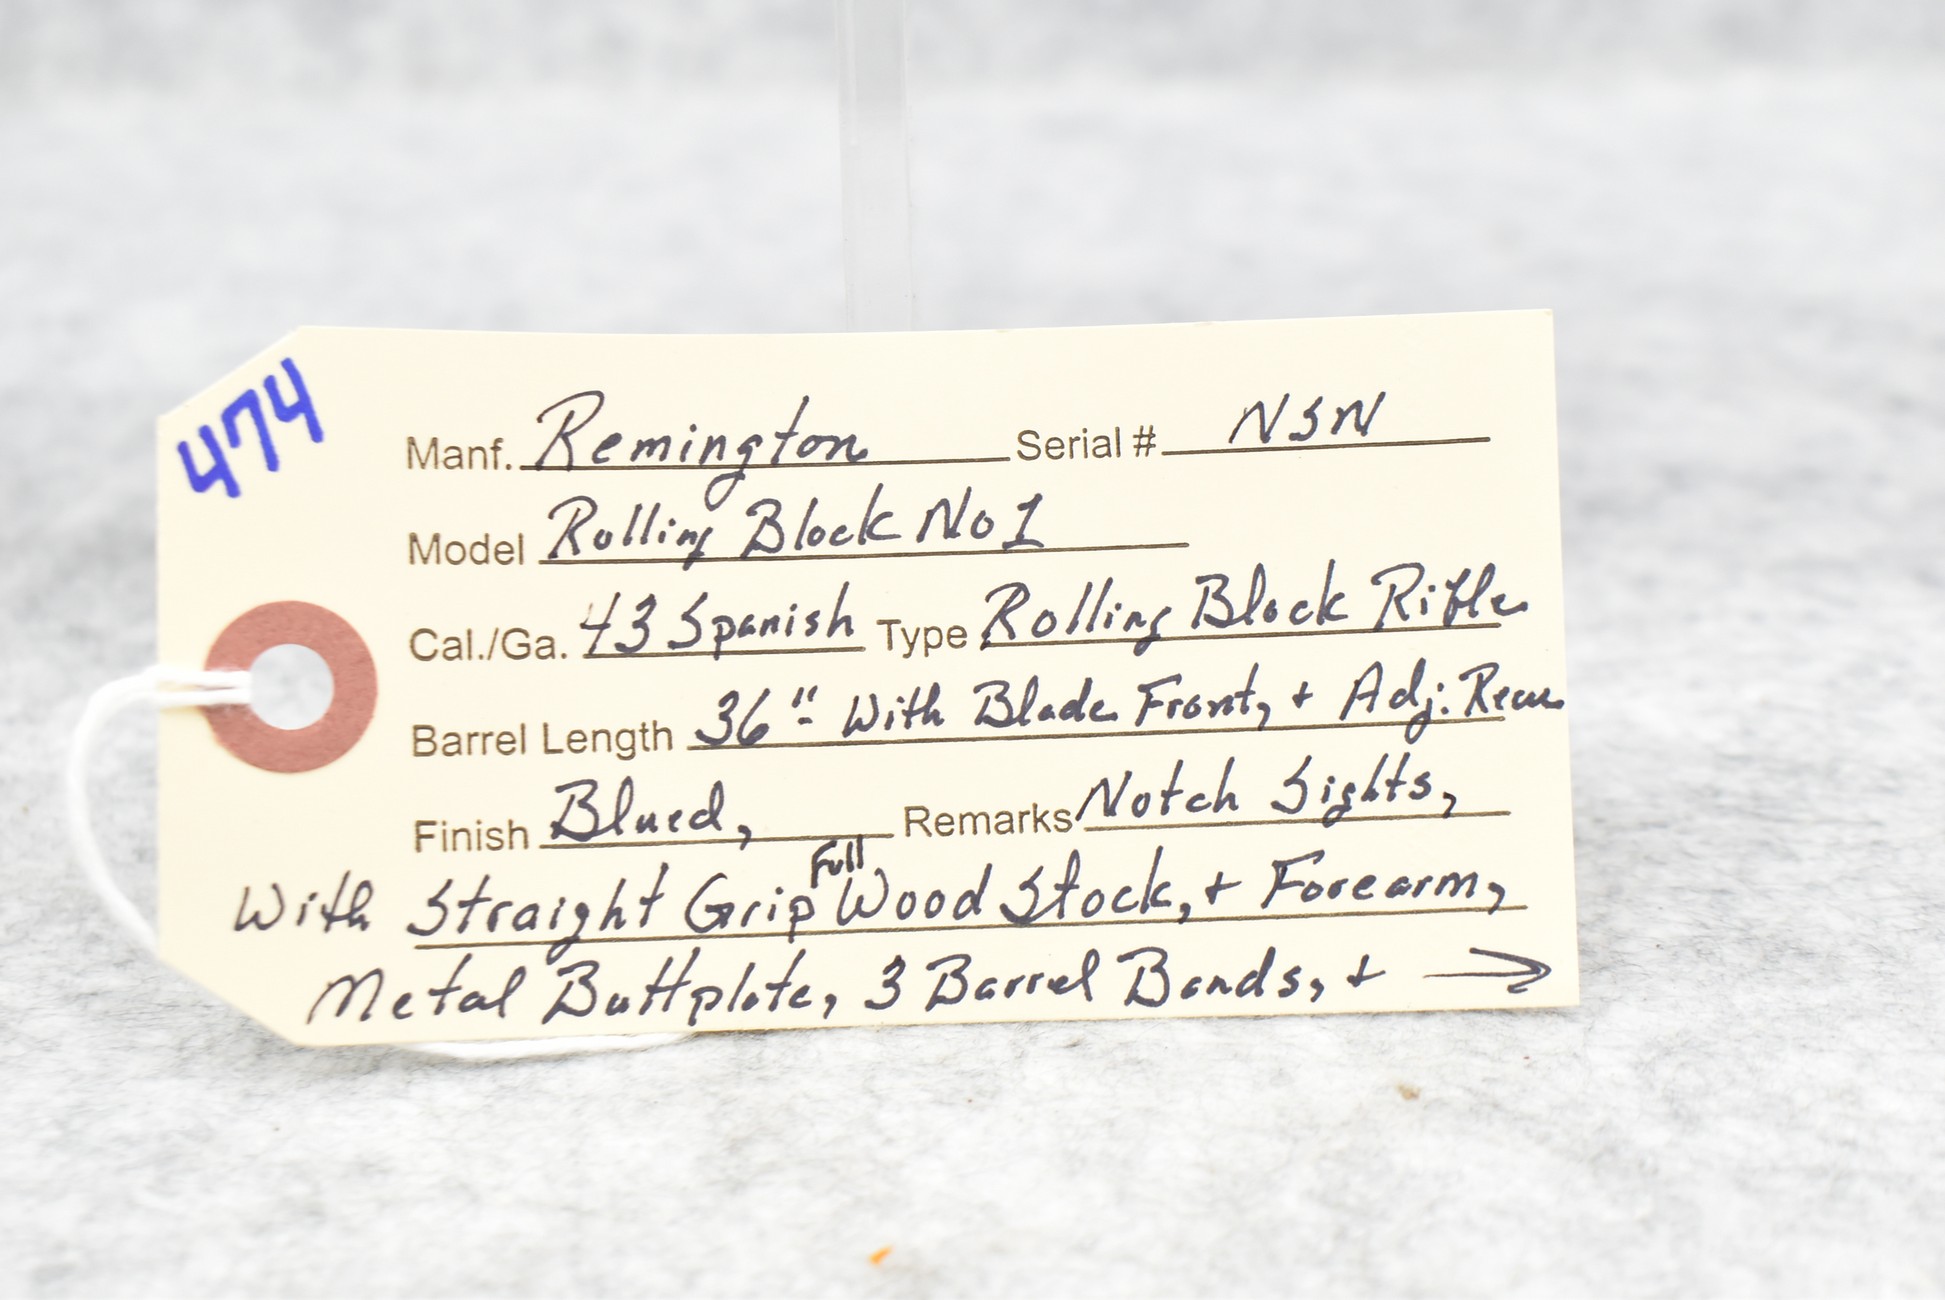 474
Manf. Remington Serial # NSN
Model Rolling Block No 1
Cal./Ga. 43 Spanish Type Rolling Block Rifle
Barrel Length 36" With Blade Front, + Adj. Rear
Finish Blued, Remarks Notch Sights,
With Straight Grip Full Wood Stock, + Forearm,
Metal Buttplate, 3 Barrel Bands, + →